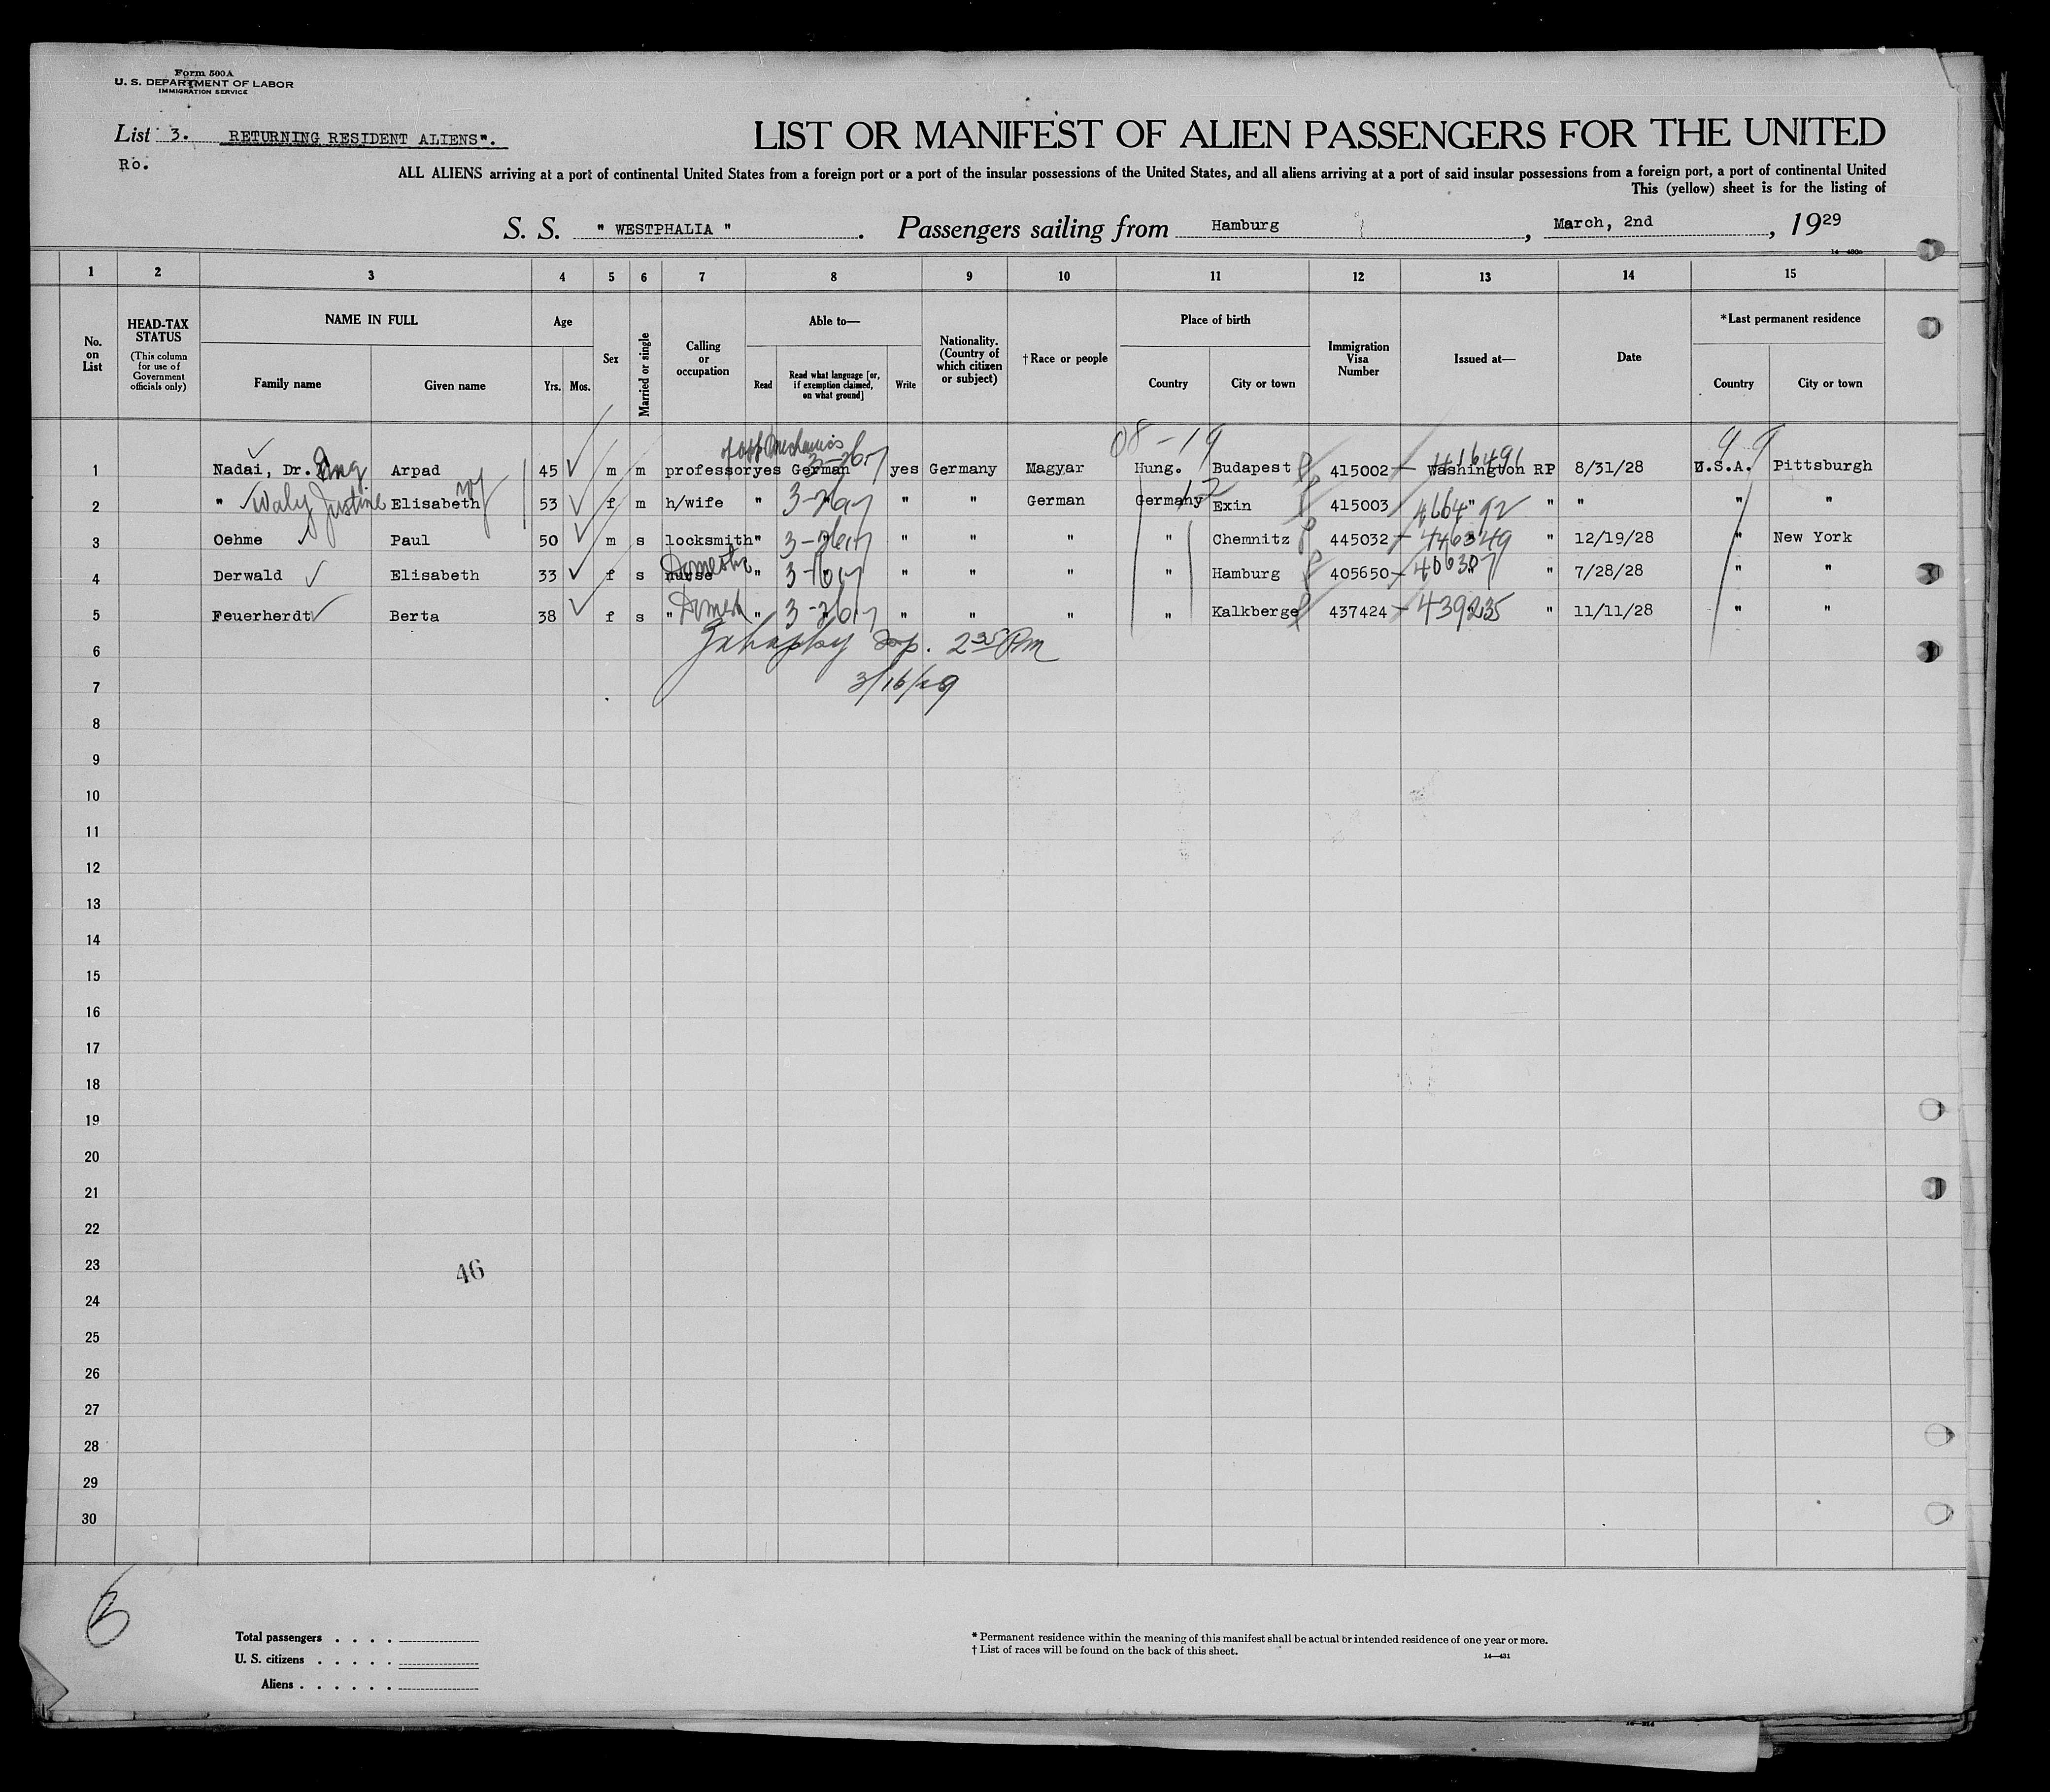 Form 500A
U. S. DEPARTMENT OF LABOR
IMMIGRATION SERVICE
List 3. RETURNING RESIDENT ALIENS".
Ro.
LIST OR MANIFEST OF ALIEN PASSENGERS FOR THE UNITED
ALL ALIENS arriving at a port of continental United States from a foreign port or a port of the insular possessions of the United States, and all aliens arriving at a port of said insular possessions from a foreign port, a port of continental United
This (yellow) sheet is for the listing of
S. S. " WESTPHALIA " . Passengers sailing from Hamburg , March, 2nd , 1929
14—430a
1 2 3 4 5 6 7 8 9 10 11 12 13 14 15
No. on List
HEAD-TAX STATUS
(This column for use of Government officials only)
NAME IN FULL
Family name Given name
Age
Yrs. Mos.
Sex
Married or single
Calling or occupation
Able to—
Read Read what language [or, if exemption claimed, on what ground] Write
Nationality. (Country of which citizen or subject)
†Race or people
Place of birth
Country City or town
Immigration Visa Number
Issued at—
Date
*Last permanent residence
Country City or town
of app mechanics 08-19 99
1 Nadai, Dr. Ing Arpad 45 m m professor yes German yes Germany Magyar Hung. Budapest 415002 416491 Washington RP 8/31/28 U.S.A. Pittsburgh
2 " Waly Justine Elisabeth wf 53 f m h/wife " " " " German Germany 12 Exin 415003 " " " " "
3 Oehme Paul 50 m s locksmith " " " " " " Chemnitz 445032 446349 " " 12/19/28 " New York
4 Derwald Elisabeth 33 f s nurse Domestic " " " " " " Hamburg 405650 406307 " " 7/28/28 " "
5 Feuerherdt Berta 38 f s " " " " " " " Kalkberge 437424 439235 " " 11/11/28 " "
6 2 35 Pm
7 3/16/29
8
9
10
11
12
13
14
15
16
17
18
19
20
21
22
23 46
24
25
26
27
28
29
30
Total passengers . . . .
U. S. citizens . . . . .
Aliens . . . . . .
* Permanent residence within the meaning of this manifest shall be actual or intended residence of one year or more.
† List of races will be found on the back of this sheet.
14—431